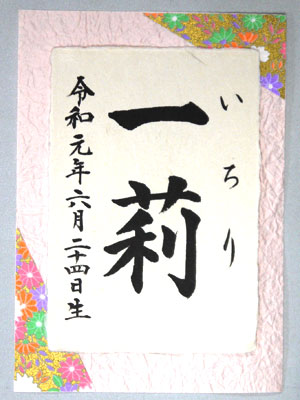 いちり
一莉
令和元年六月二十四日生